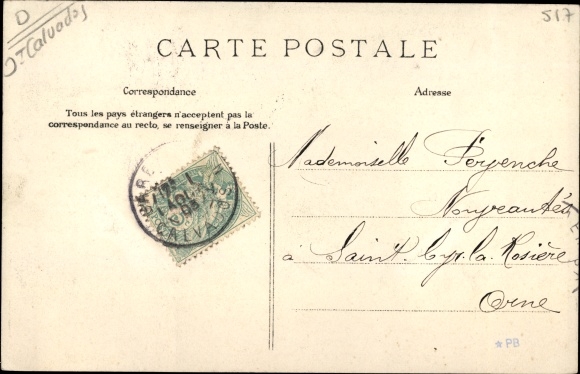 D
Dt Calvados
517
CARTE POSTALE
Correspondance
Adresse
Tous les pays étrangers n'acceptent pas la
correspondance au recto, se renseigner à la Poste.
CALVADOS
Mademoiselle
Nouveautés
à Saint. Cyr. la. Rosière
Orne
* PB